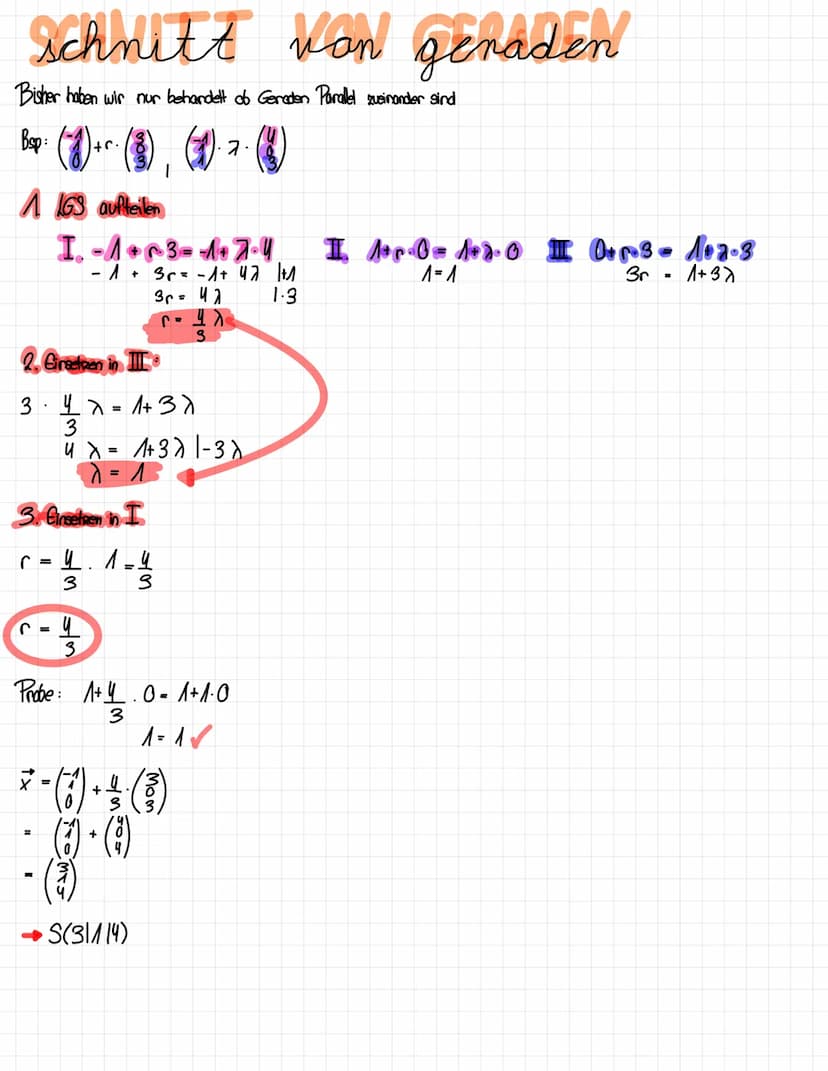 schnitt von geraden
Bisher haben wir nur behandelt ob Geraden Parallel zueinander sind
Bsp: (-1 1 0) + r · (3 0 3) , (-1 1 1) · λ · (4 0 3)
1 LGS aufteilen
I. -1 + r·3 = -1 + λ·4 II. 1+r·0 = 1+λ·0 III 0+r·3 = 1+λ·3
-1 + 3r = -1 + 4λ |+1 1=1 3r = 1+3λ
3r = 4λ |·3
r = 4/3 λ
2. Einsetzen in III:
3 · 4/3 λ = 1+3λ
4λ = 1+3λ |-3λ
λ = 1
3. Einsetzen in I
r = 4/3 · 1 = 4/3
r = 4/3
Probe: 1+4/3 · 0 = 1+1·0
1 = 1 ✓
x⃗ = (-1 1 0) + 4/3 · (3 0 3)
= (-1 1 0) + (4 0 4)
= (3 1 4)
→ S(3|1|4)